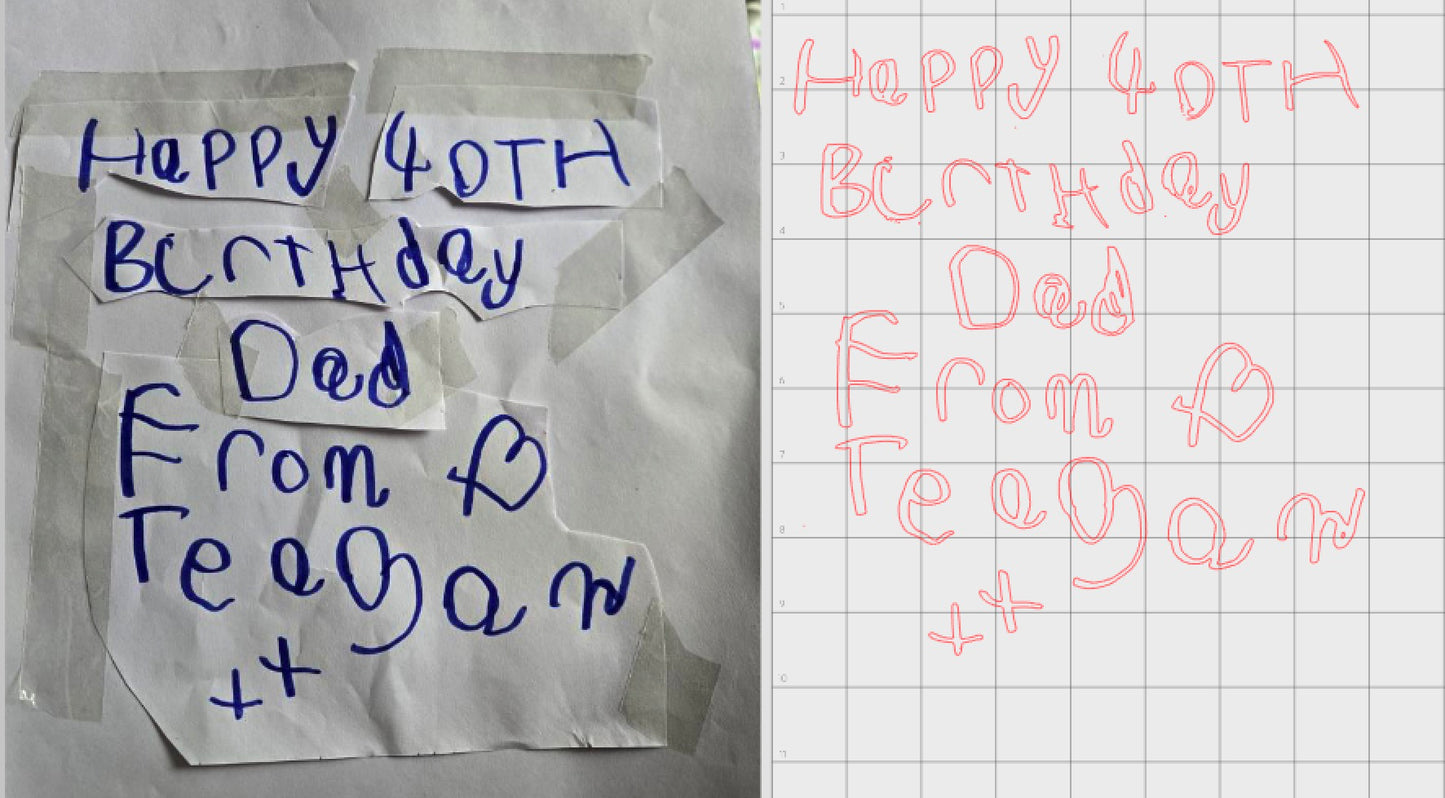 Happy 40TH
BCrTHday
Dad
From
Teagan
++
Happy 40TH
BCrTHday
Dad
From
Teagan
++
1
2
3
4
5
6
7
8
9
10
11